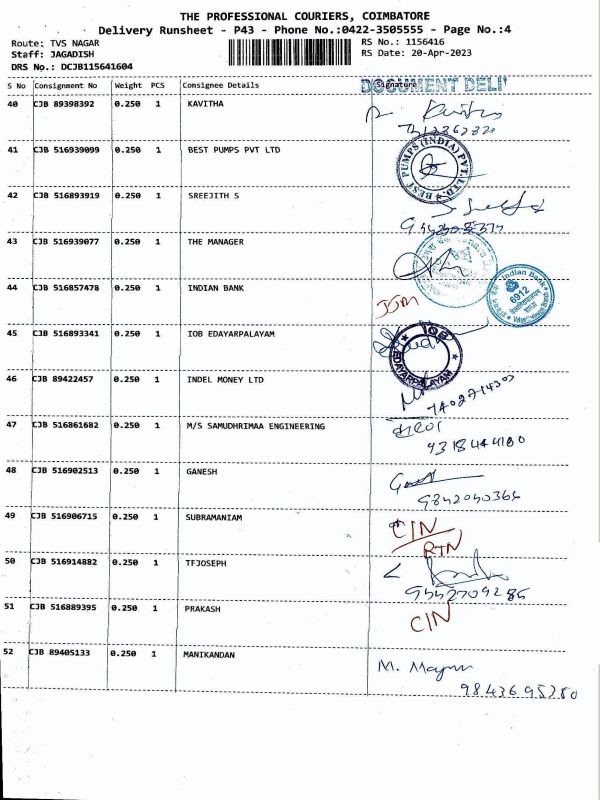 THE PROFESSIONAL COURIERS, COIMBATORE
Delivery Runsheet - P43 - Phone No.:0422-3505555 - Page No.:4
Route: TVS NAGAR
RS No.: 1156416
Staff: JAGADISH
RS Date: 20-Apr-2023
DRS No.: DCJB115641604
DOCUMENT DELI
S No Consignment No Weight PCS Consignee Details Signature
40 CJB 89398392 0.250 1 KAVITHA
41 CJB 516939099 0.250 1 BEST PUMPS PVT LTD
BEST PUMPS (INDIA) PVT. LTD.
42 CJB 516893919 0.250 1 SREEJITH S
43 CJB 516939077 0.250 1 THE MANAGER
44 CJB 516857478 0.250 1 INDIAN BANK
Indian Bank
6912
45 CJB 516893341 0.250 1 IOB EDAYARPALAYAM
IOB
EDAYARPALAYAM
46 CJB 89422457 0.250 1 INDEL MONEY LTD
7402714303
47 CJB 516861682 0.250 1 M/S SAMUDHRIMAA ENGINEERING
9318444180
48 CJB 516902513 0.250 1 GANESH
9842040364
49 CJB 516906715 0.250 1 SUBRAMANIAM
CIN
RTN
50 CJB 516914882 0.250 1 TFJOSEPH
9442709286
51 CJB 516889395 0.250 1 PRAKASH
CIN
52 CJB 89405133 0.250 1 MANIKANDAN
9843695280